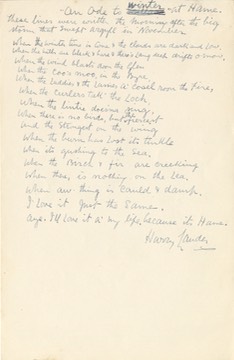 "An Ode to winter" - at Hame.
These lines were wrote the morning after the big
storm that swept Argyll in November
When the winter time is Come & the clouds are dark and low,
When the hills are bleak & bare & there's lang dark nights o' snow,
When the wind blasts doon the Glen
When the coo's moo, in the Byre
When the laddies & the lassies a' cosil roon the Fires
When the Curlers talk the Loch
When the lintie doesna sing
When there is nae birds, but the
and the Strongest on the wing
When the burn has lost its tinkle
When its rushing to the Sea,
When the Birch & fir are creaking
When there is nothing on the Lea.
When aw thing is Cauld & damp.
I Love it Just the Same.
Aye. I'll Love it a' my life, because its Hame.
Harry Lauder